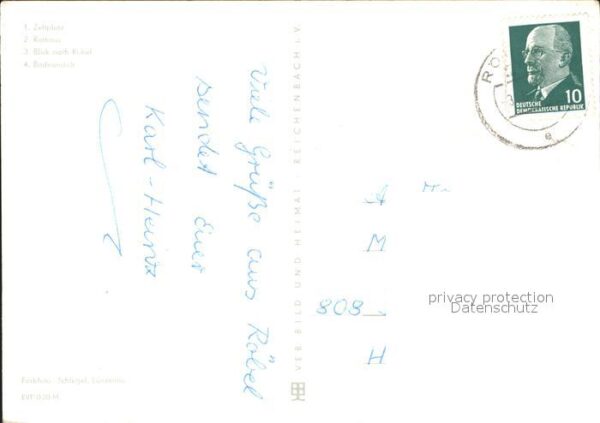 1. Zeltplatz
2. Rathaus
3. Blick nach Röbel
4. Badestrand
Viele Grüße aus Röbel
sendet Euer
Karl-Heinz
VEB BILD UND HEIMAT · REICHENBACH i. V.
10
DEUTSCHE
DEMOKRATISCHE REPUBLIK
RÖ
e
A
M
808
H
privacy protection
Datenschutz